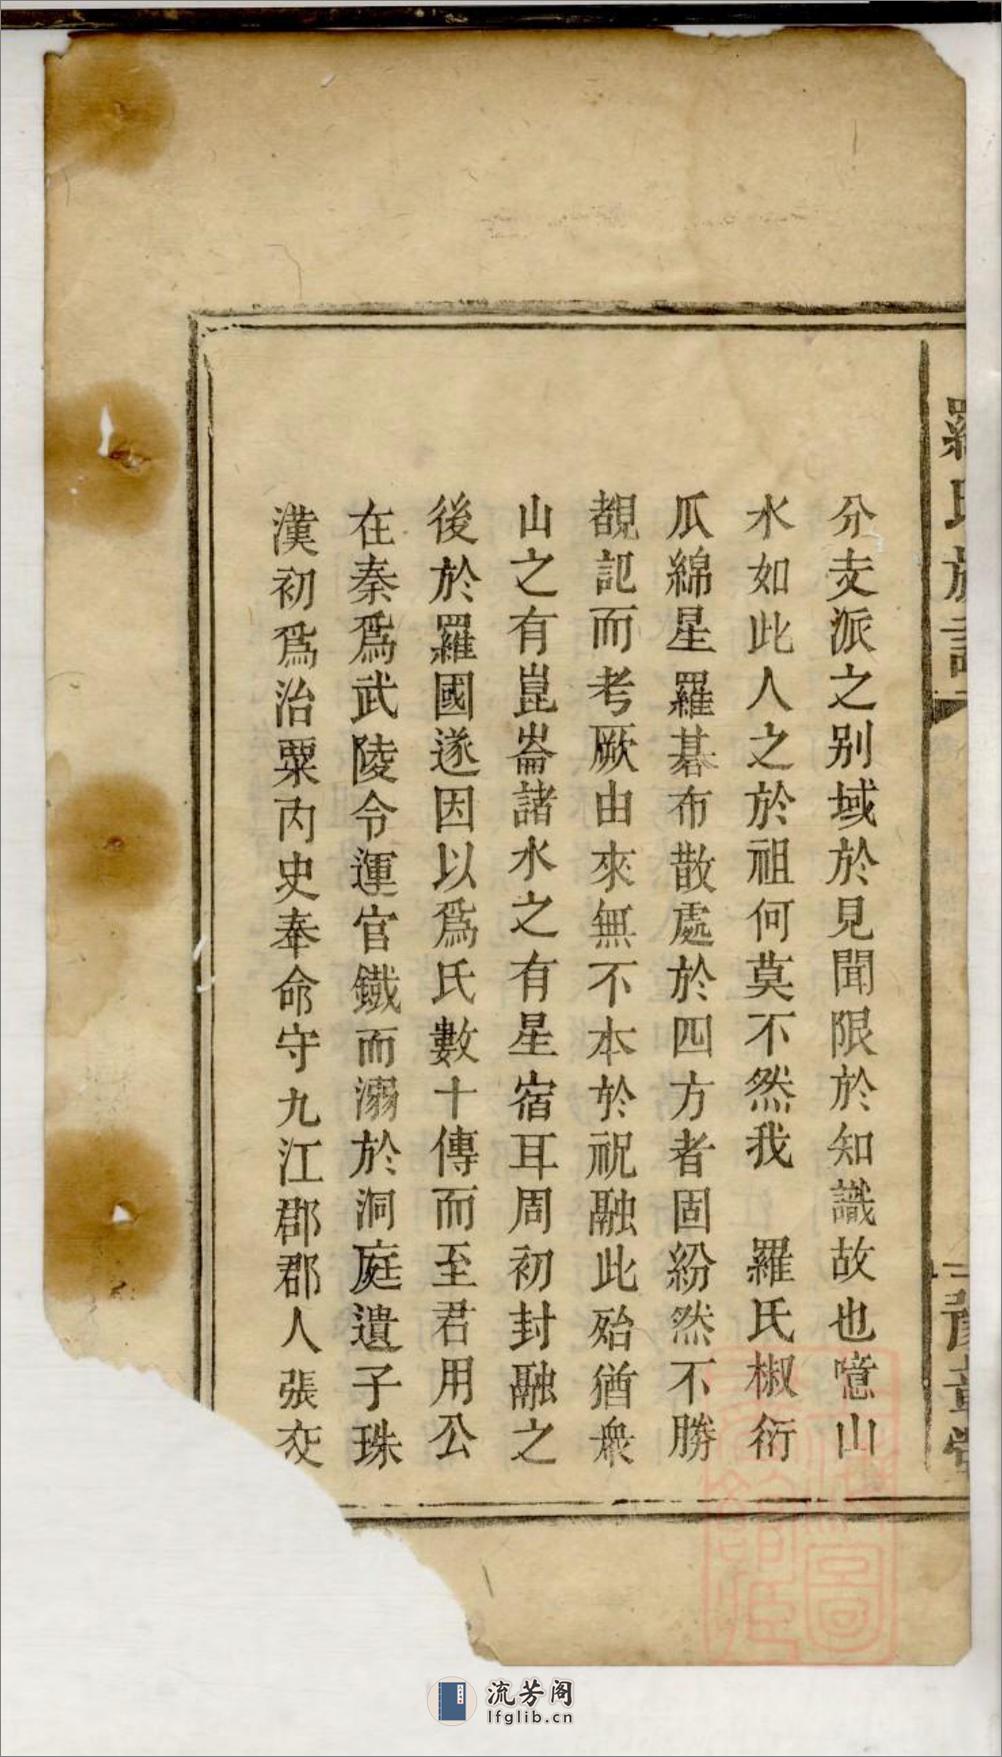 羅氏族譜
豫章堂
分支派之別域於見聞限於知識故也噫山
水如此人之於祖何莫不然我　羅氏椒衍
瓜綿星羅碁布散處於四方者固紛然不勝
覩記而考厥由來無不本於祝融此殆猶衆
山之有崑崙諸水之有星宿耳周初封融之
後於羅國遂因以爲氏數十傳而至君用公
在秦爲武陵令運官鐵而溺於洞庭遺子珠
漢初爲治粟內史奉命守九江郡郡人張
流芳阁
lfglib.cn